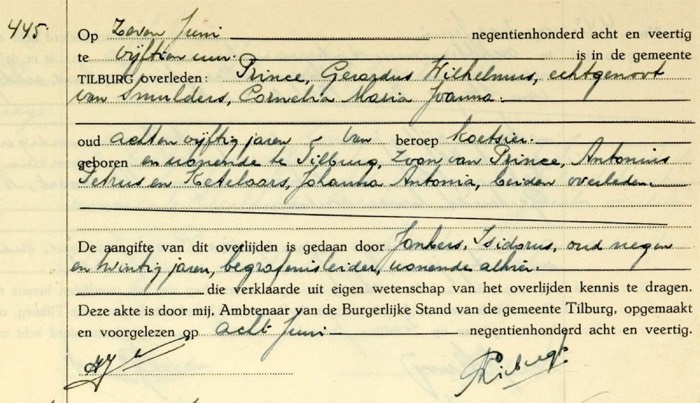 445.
Op Zeven Juni negentienhonderd acht en veertig
te vijftien uur. is in de gemeente
TILBURG overleden: Prince, Gerardus Wilhelmus, echtgenoot
van Smulders, Cornelia Maria Joanna.
oud acht en vijftig jaren - van beroep koetsier.
geboren en wonende te Tilburg, Zoon van Prince, Antonius
Petrus en Ketelaars, Johanna Antonia, beiden overleden.
De aangifte van dit overlijden is gedaan door Jonkers, Isidorus, oud negen
en twintig jaren, begrafenisleider, wonende alhier.
die verklaarde uit eigen wetenschap van het overlijden kennis te dragen.
Deze akte is door mij, Ambtenaar van de Burgerlijke Stand van de gemeente Tilburg, opgemaakt
en voorgelezen op acht Juni negentienhonderd acht en veertig.